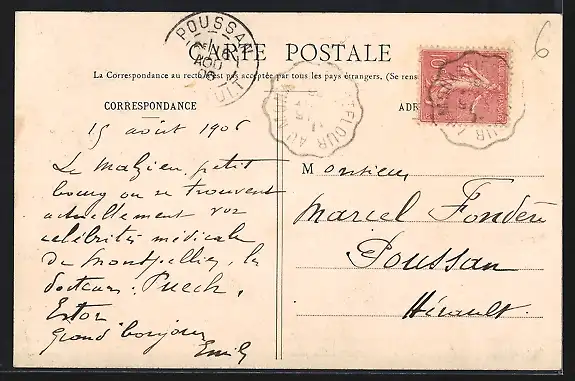 CARTE POSTALE
La Correspondance au recto n'est pas acceptée par tous les pays étrangers. (Se rens
CORRESPONDANCE
ADR
POUSSAN
AOU
06
10
6
15 août 1906
Le Malzieu, petit
bourg ou se trouvent
actuellement vos
célébrités médicale
de Montpellier, les
docteurs: Puech,
Estor
Grand bonjour
Emile
Monsieur
Marcel Fondère
Poussan
Hérault.